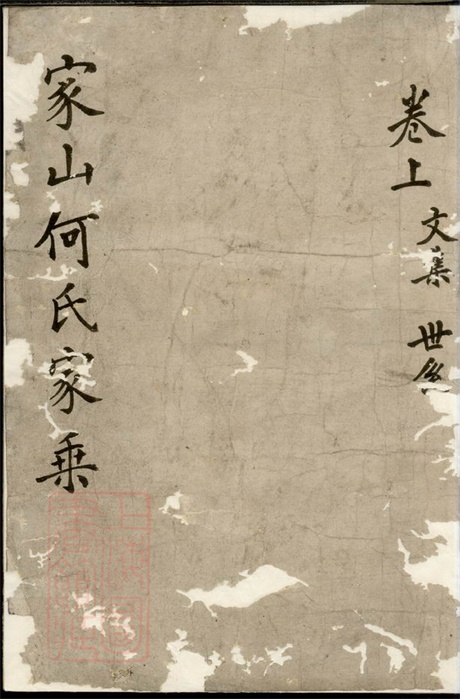 卷上
文集 世系
家山何氏家乘